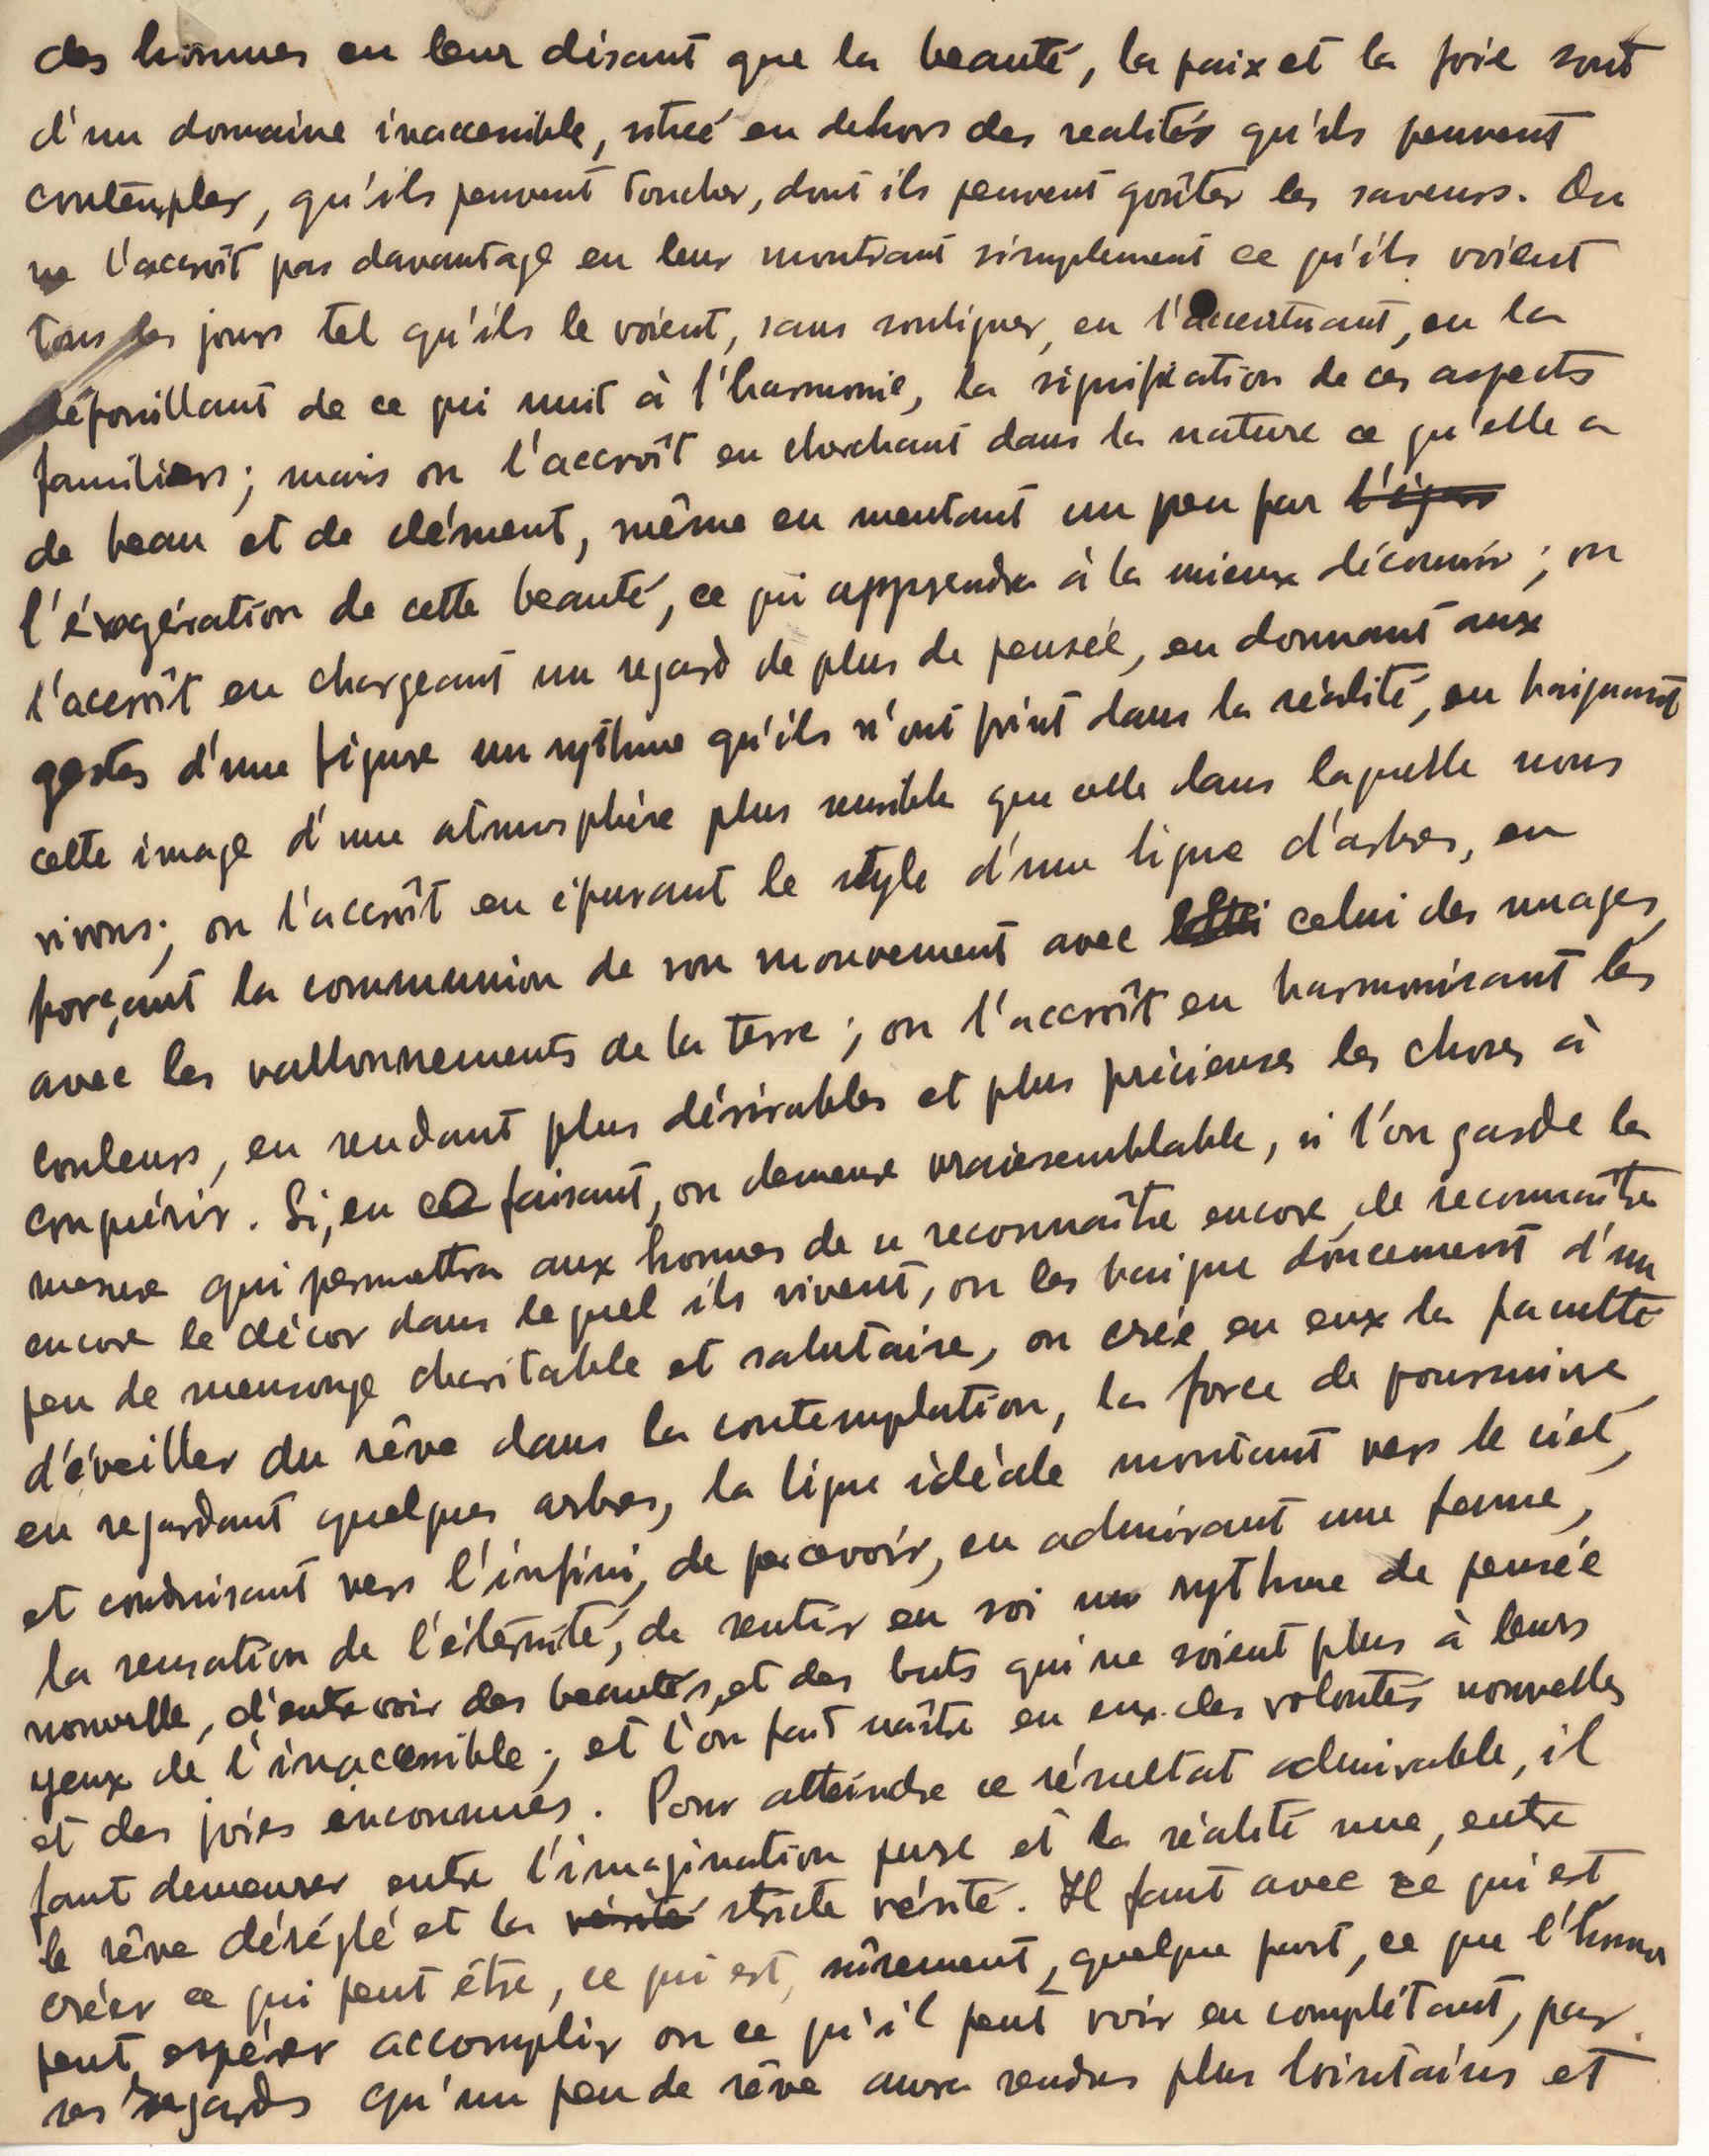 des hommes en leur disant que la beauté, la paix et la joie sont
d'un domaine inaccessible, situé en dehors des réalités qu'ils peuvent
contempler, qu'ils peuvent toucher, dont ils peuvent goûter les saveurs. On
ne l'accroît pas davantage en leur montrant simplement ce qu'ils voient
tous les jours tel qu'ils le voient, sans souligner, en l'accentuant, en la
dépouillant de ce qui nuit à l'harmonie, la signification de ces aspects
familiers; mais on l'accroît en cherchant dans la nature ce qu'elle a
de beau et de clément, même en mentant un peu par
l'éxagération de cette beauté, ce qui apprendra à la mieux découvrir; on
l'accroît en chargeant un regard de plus de pensée, en donnant aux
gestes d'une figure un rythme qu'ils n'ont point dans la réalité, en baignant
cette image d'une atmosphère plus sensible que celle dans laquelle nous
vivons; on l'accroît en épurant le style d'une ligne d'arbres, en
forçant la communion de son mouvement avec celui des nuages,
avec les vallonnements de la terre; on l'accroît en harmonisant les
couleurs, en rendant plus désirables et plus précieuses les choses à
conquérir. Si, en ce faisant, on demeure vraisemblable, si l'on garde la
mesure qui permettra aux hommes de se reconnaître encore, de reconnaître
encore le décor dans lequel ils vivent, on les baigne doucement d'un
peu de mensonge charitable et salutaire, on crée en eux la faculté
d'éveiller du rêve dans la contemplation, la force de poursuivre,
en regardant quelques arbres, la ligne idéale montant vers le ciel,
et conduisant vers l'infini, de percevoir, en admirant une femme,
la sensation de l'éternité, de sentir en soi un rythme de pensée
nouvelle, d'entrevoir des beautés, et des buts qui ne soient plus à leurs
yeux de l'inaccessible; et l'on fait naître en eux des volontés nouvelles
et des joies inconnues. Pour atteindre ce résultat admirable, il
faut demeurer entre l'imagination pure et la réalité nue, entre
le rêve déréglé et la vérité stricte vérité. Il faut avec ce qui est
créer ce qui peut être, ce qui est, sûrement, quelque part, ce que l'homme
peut espérer accomplir ou ce qu'il peut voir en complétant, par
ses regards qu'un peu de rêve aura rendus plus lointains et